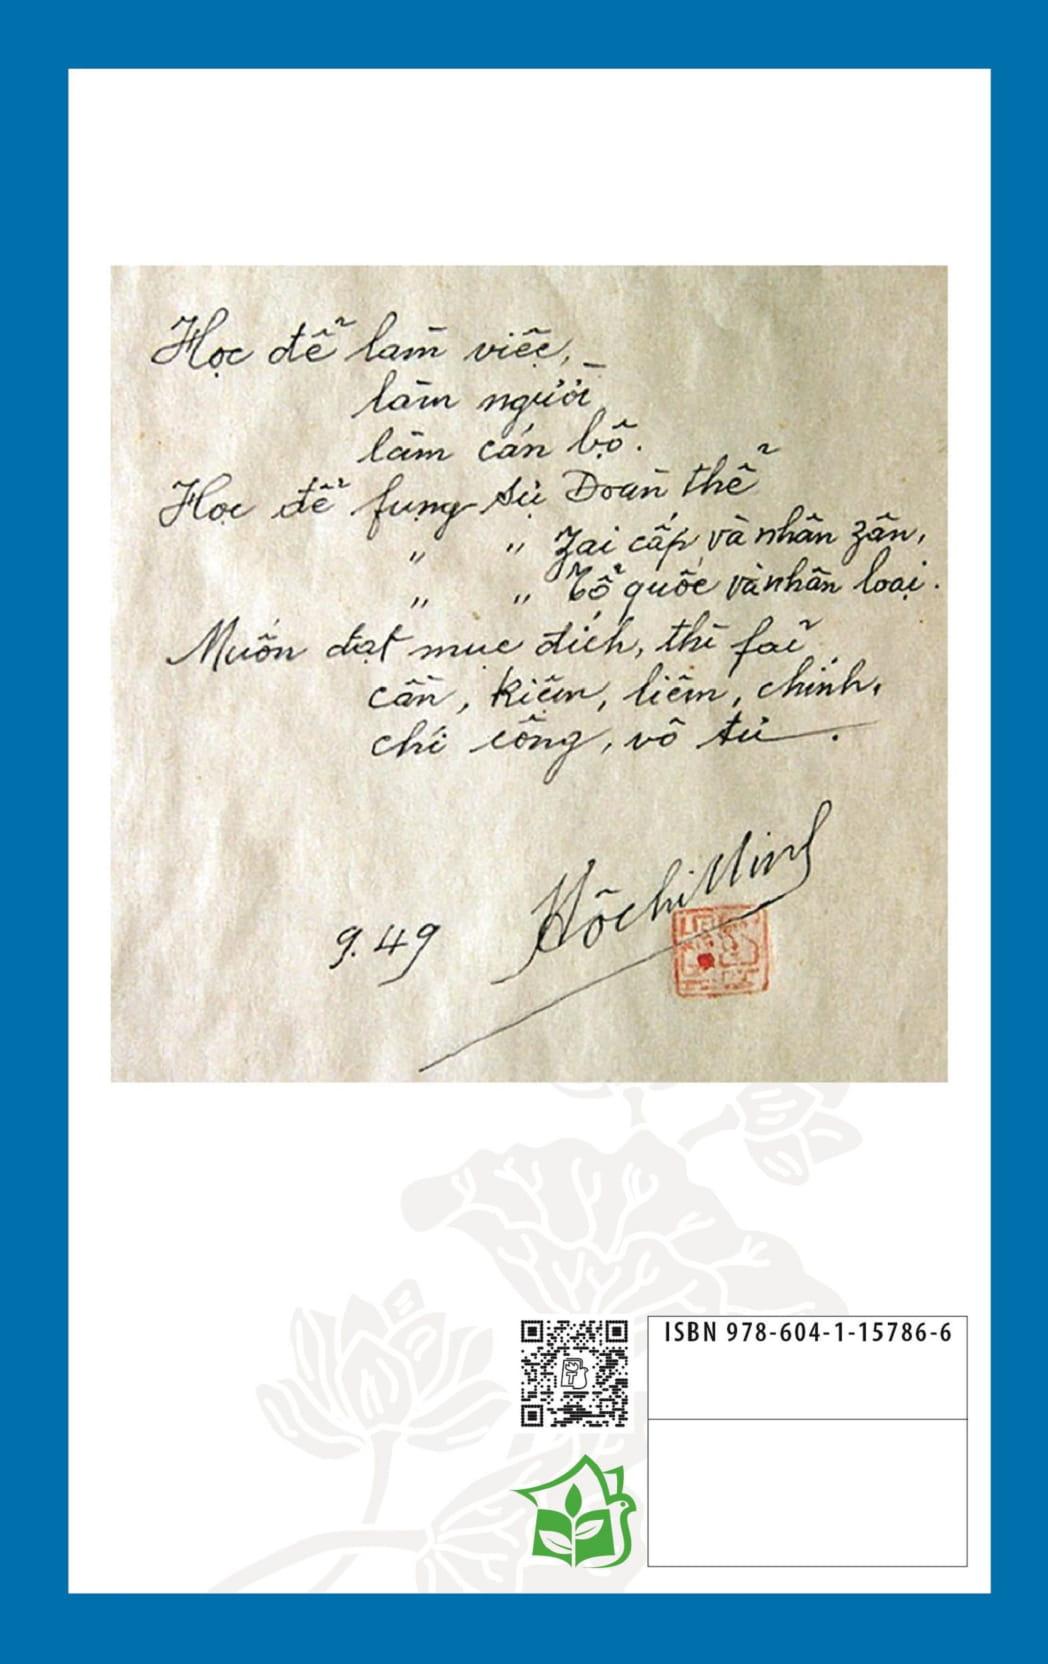 Học để làm việc,
làm người
làm cán bộ.
Học để fụng sự Đoàn thể
" " Zai cấp và nhân zân,
" " Tổ quốc và nhân loại.
Muốn đạt mục đích, thì fải
cần, kiệm, liêm, chính,
chí công, vô tư.
9.49 Hồ chí Minh
ISBN 978-604-1-15786-6